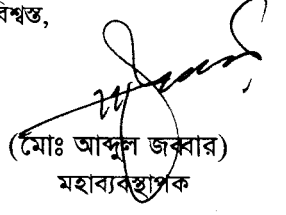 বিশ্বস্ত,
(মোঃ আব্দুল জব্বার)
মহাব্যবস্থাপক